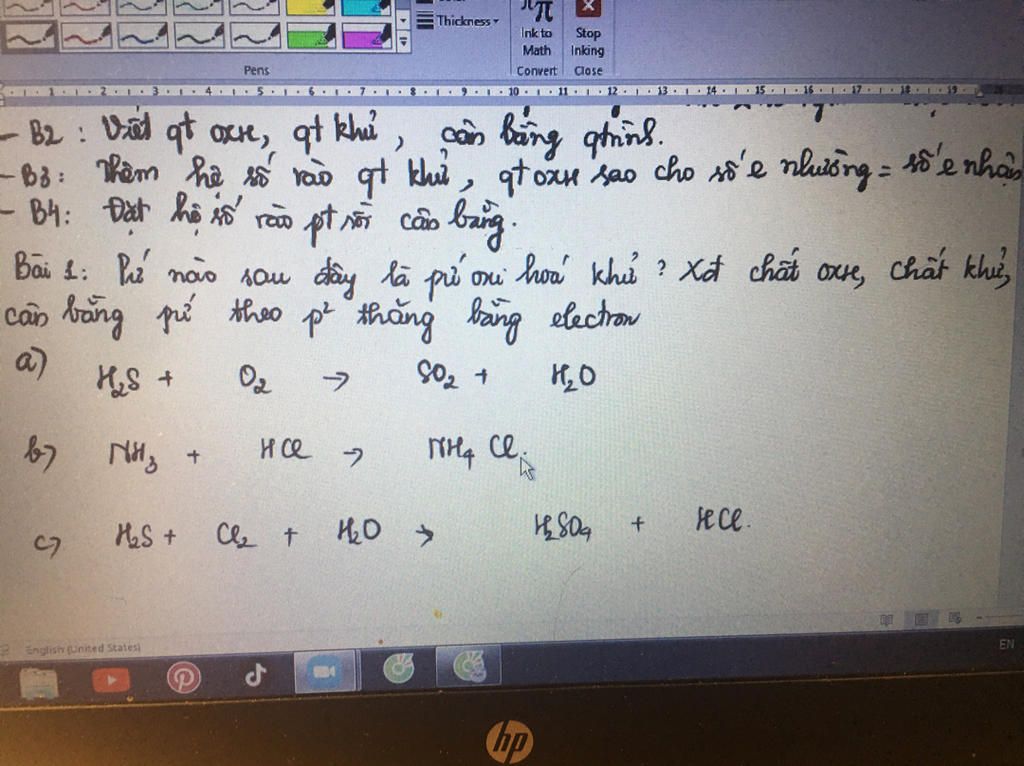 Thickness
Ink to Math
Stop Inking
Pens
Convert
Close
1 2 3 4 5 6 7 8 9 10 11 12 13 14 15 16 17 18 19
- B2 : Viết qt oxh, qt khử, cân bằng qtrình.
- B3 : Thêm hệ số vào qt khử, qt oxh sao cho số e nhường = số e nhận
- B4 : Đặt hệ số vào pt rồi cân bằng.
Bài 1 : Pứ nào sau đây là pứ oxi hoá khử ? Xđ chất oxh, chất khử,
cân bằng pứ theo p² thăng bằng electron
a) H₂S + O₂ → SO₂ + H₂O
b) NH₃ + HCl → NH₄ Cl.
c) H₂S + Cl₂ + H₂O → H₂SO₄ + HCl.
English (United States)
EN
hp